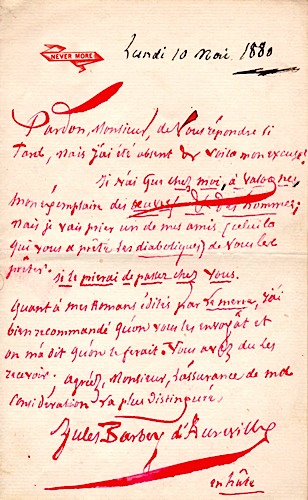 NEVER MORE
Lundi 10 Mai 1880
Pardon, Monsieur, de Vous répondre si
Tard, Mais j'ai été absent & Voilà mon excuse!
Je n'ai que chez moi, à Valognes,
Mon exemplaire des œuvres & des hommes,
Mais je vais prier un de mes amis (celui là
qui vous a prêté les diaboliques) de Vous les
prêter.
Je le prierai de passer chez Vous.
Quant à mes Romans édités par Lemerre, j'ai
bien recommandé qu'on vous les envoyât et
on m'a dit qu'on le ferait. Vous avez du les
recevoir. agréez, Monsieur, l'assurance de ma
Considération la plus distinguée
Jules Barbey d'Aurevilly
en hâte